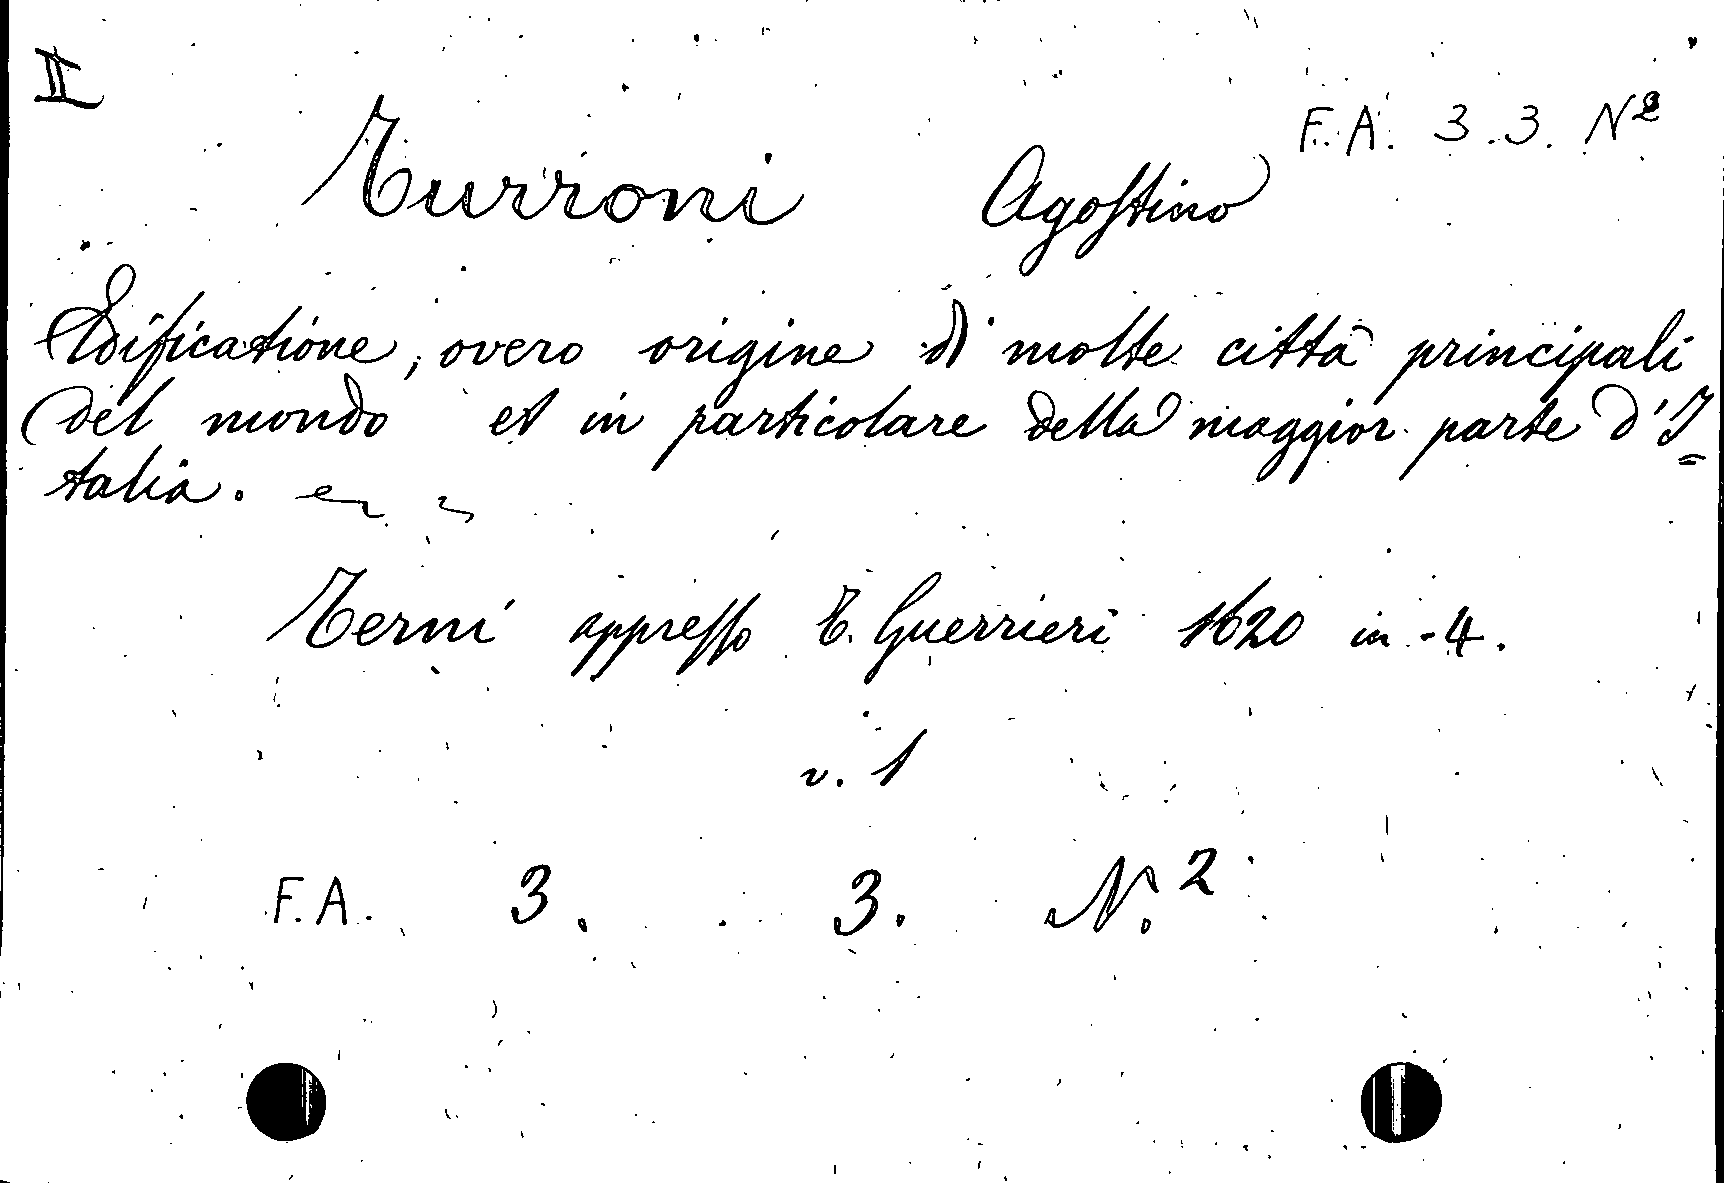 II
F. A. 3. 3. N 2
Turroni Agostino
Edificatione, overo origine di molte città principali
del mondo et in particolare della maggior parte d'I=
talia.
Terni appresso T. Guerrieri 1620 in-4.
v. 1
F. A. 3. 3. N. 2